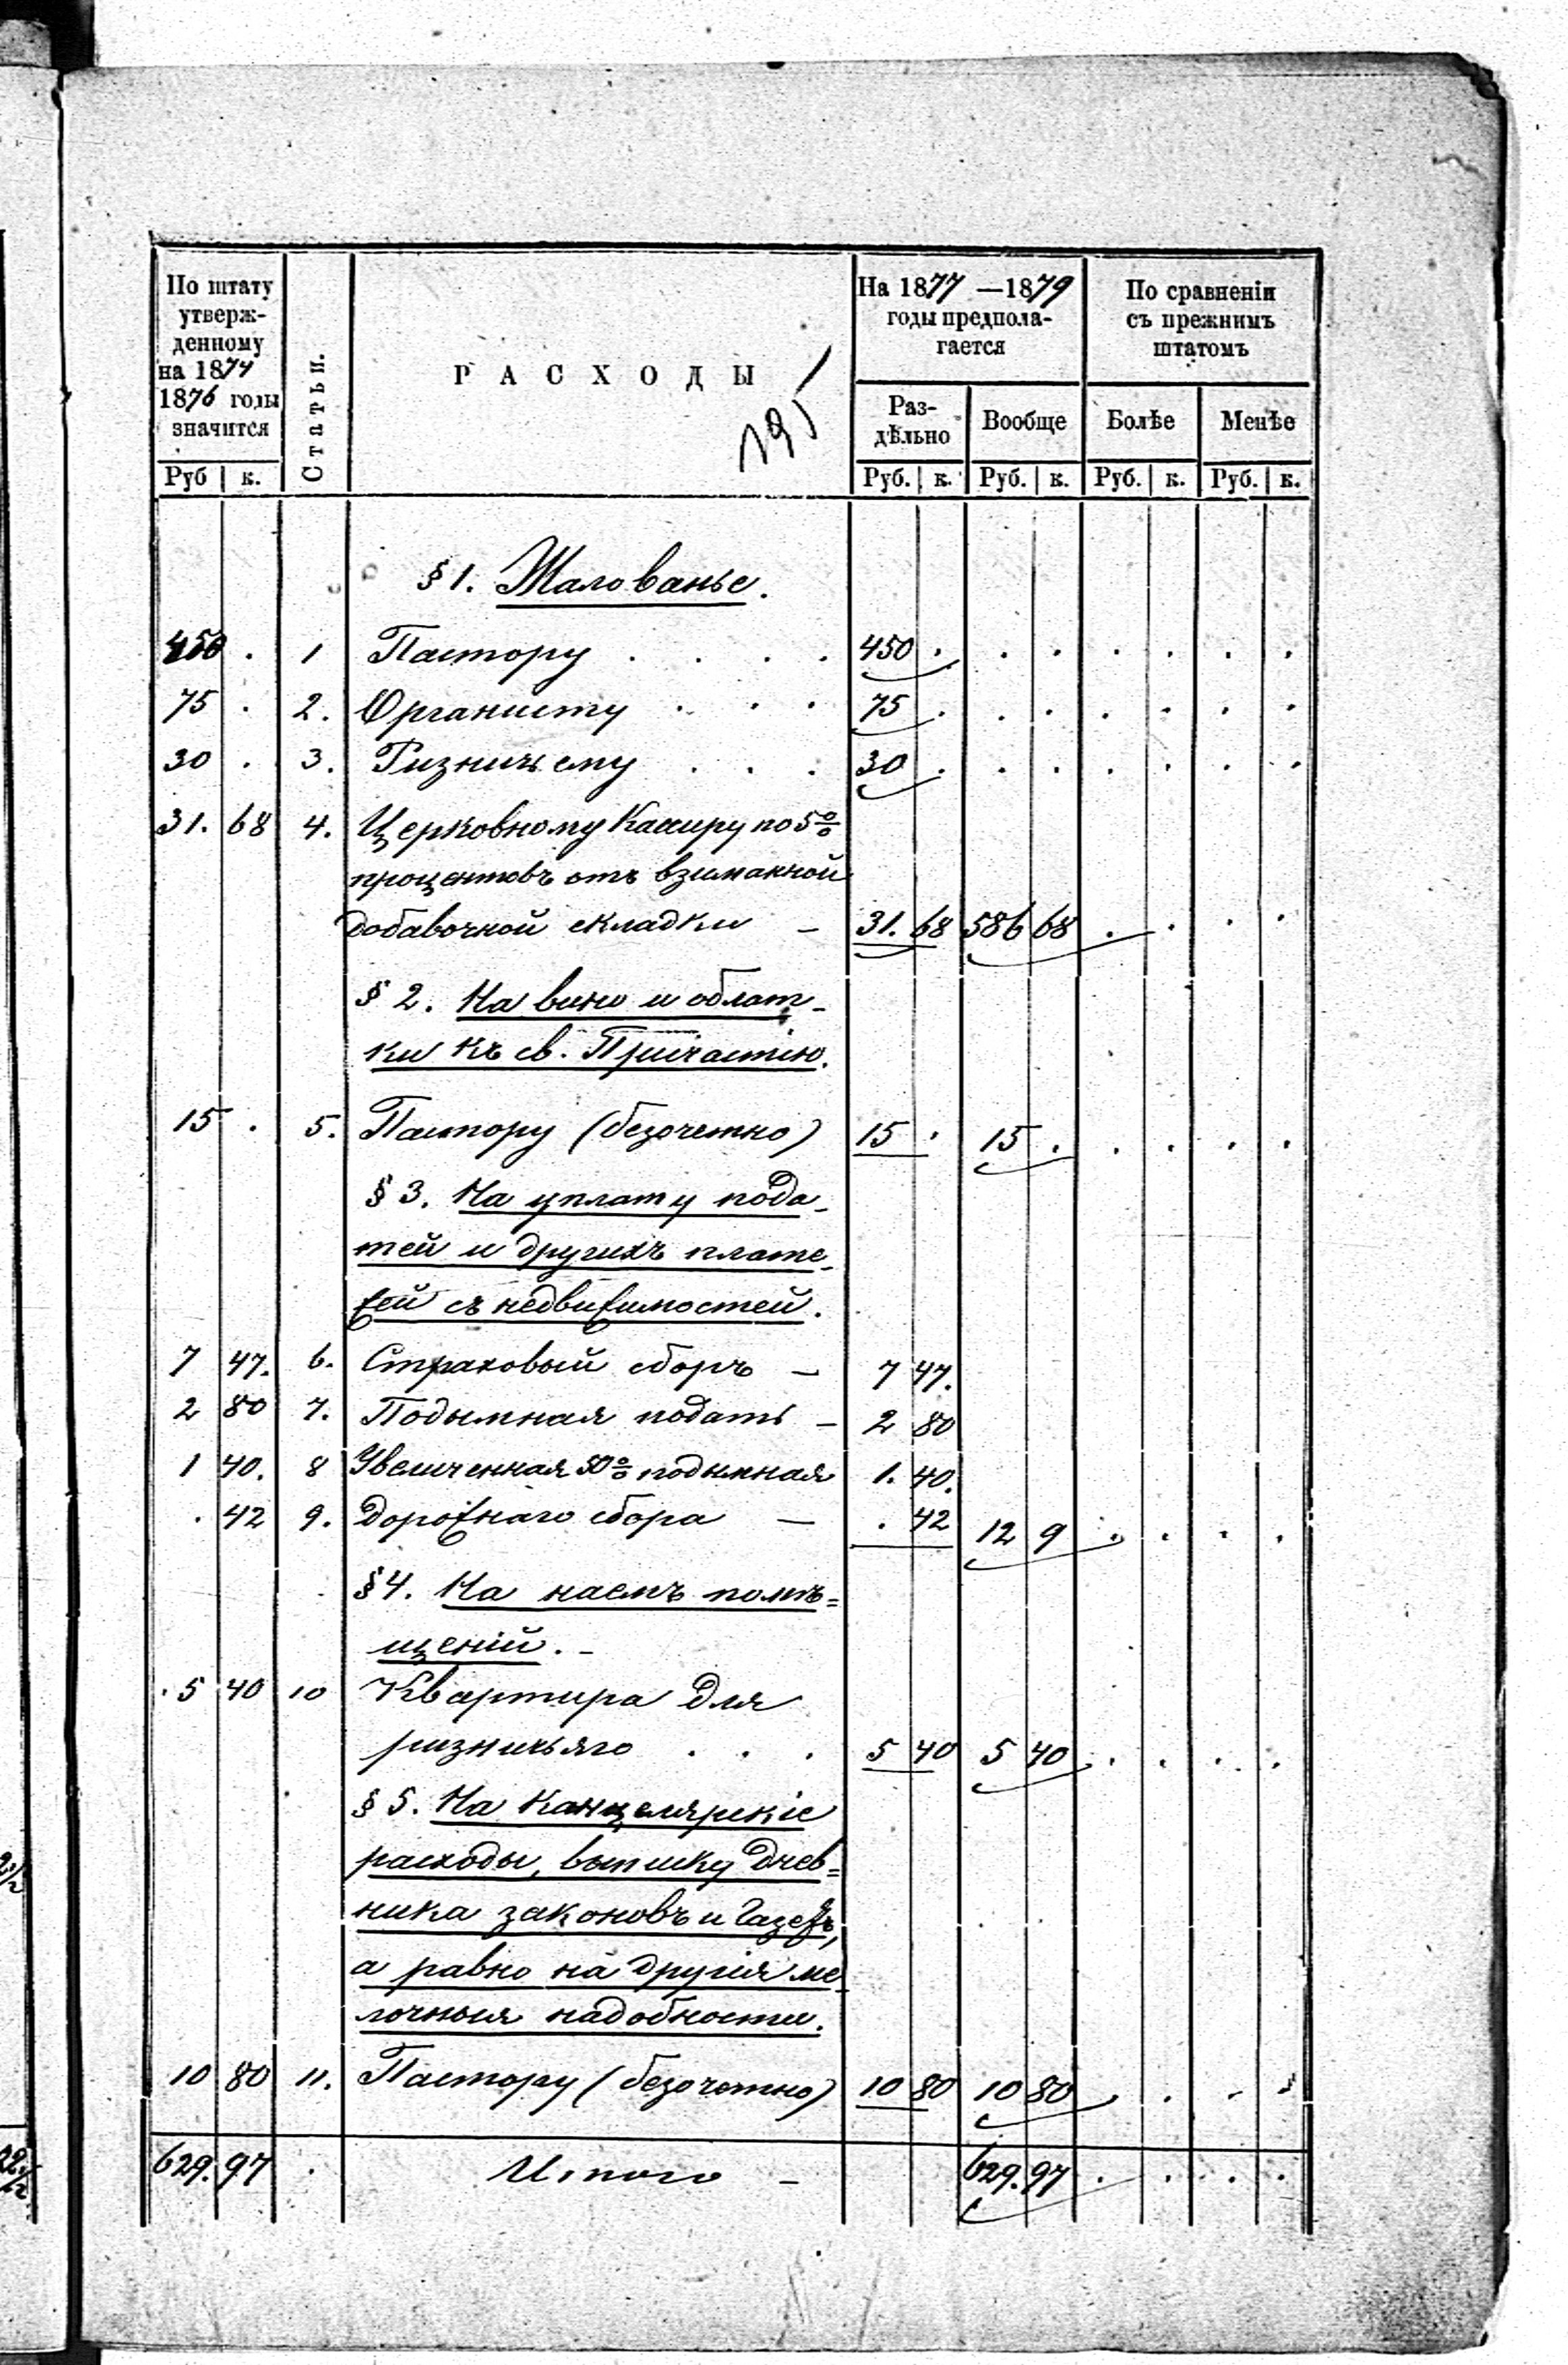 По штату утверж-денному на 1874 1876 годы значится
Статьи.
РАСХОДЫ
195
На 1877 —1879 годы предпола-гается
По сравненіи съ прежнимъ штатомъ
Раз-дѣльно Вообще Болѣе Менѣе
Руб к. Руб. к. Руб. к. Руб. к. Руб. к.
§ 1. Жалованье.
450 . 1 Пастору . . . . 450 . . . . . . .
75 . 2. Органисту . . . 75 . . . . . . .
30 . 3. Ризничьему . . . 30 . . . . . . .
31. 68 4. Церковному Кассиру по 5%
процентовъ отъ взиманной
добавочной складки — 31. 68 586 68 . . . .
§ 2. На вино и облат-
ки къ св. Причастію.
15 . 5. Пастору (безочетно) 15 . 15 . . . . .
§ 3. На уплату пода-
тей и другихъ плате-
жей съ недвижимостей.
7 47. 6. Страховый сборъ — 7 47.
2 80 7. Подымная подать — 2 80
1 40. 8 Увеличенная 50% подымная 1. 40.
. 42 9. Дорожнаго сбора — . 42 12 9 . . . .
§ 4. На наемъ помѣ=
щеній. -
. 5 40 10 Квартира для
ризничьяго . . . 5 40 5 40 . . . .
§ 5. На Канцелярскіе
расходы, выписку Днев=
ника законовъ и Газетъ,
а равно на другія ме
лочныя надобности.
10 80 11. Пастору (безочетно) 10 80 10 80 . . . .
629. 97 . Итого — 629. 97 . . . .